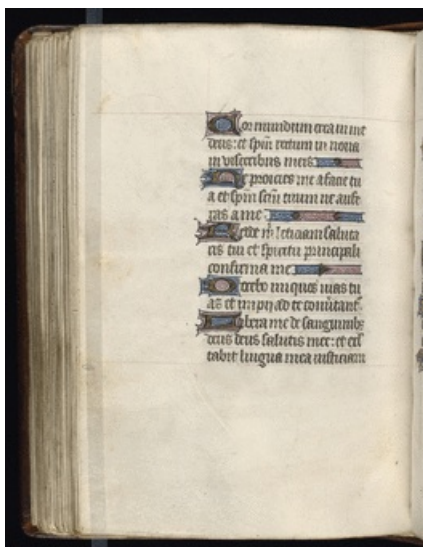 Cor mundum crea in me
deus: et spm rectum in noua
in visceribus meis
Ne proicias me a facie tu
a et spm scm tuum ne aufe
ras a me
Redde m leticiam saluta
ris tui et spiritu principali
confirma me
Docebo iniquos uias tu
as et impii ad te conuertant
Libera me de sanguinib
deus deus salutis mee: et exl
tabit lingua mea iusticiam